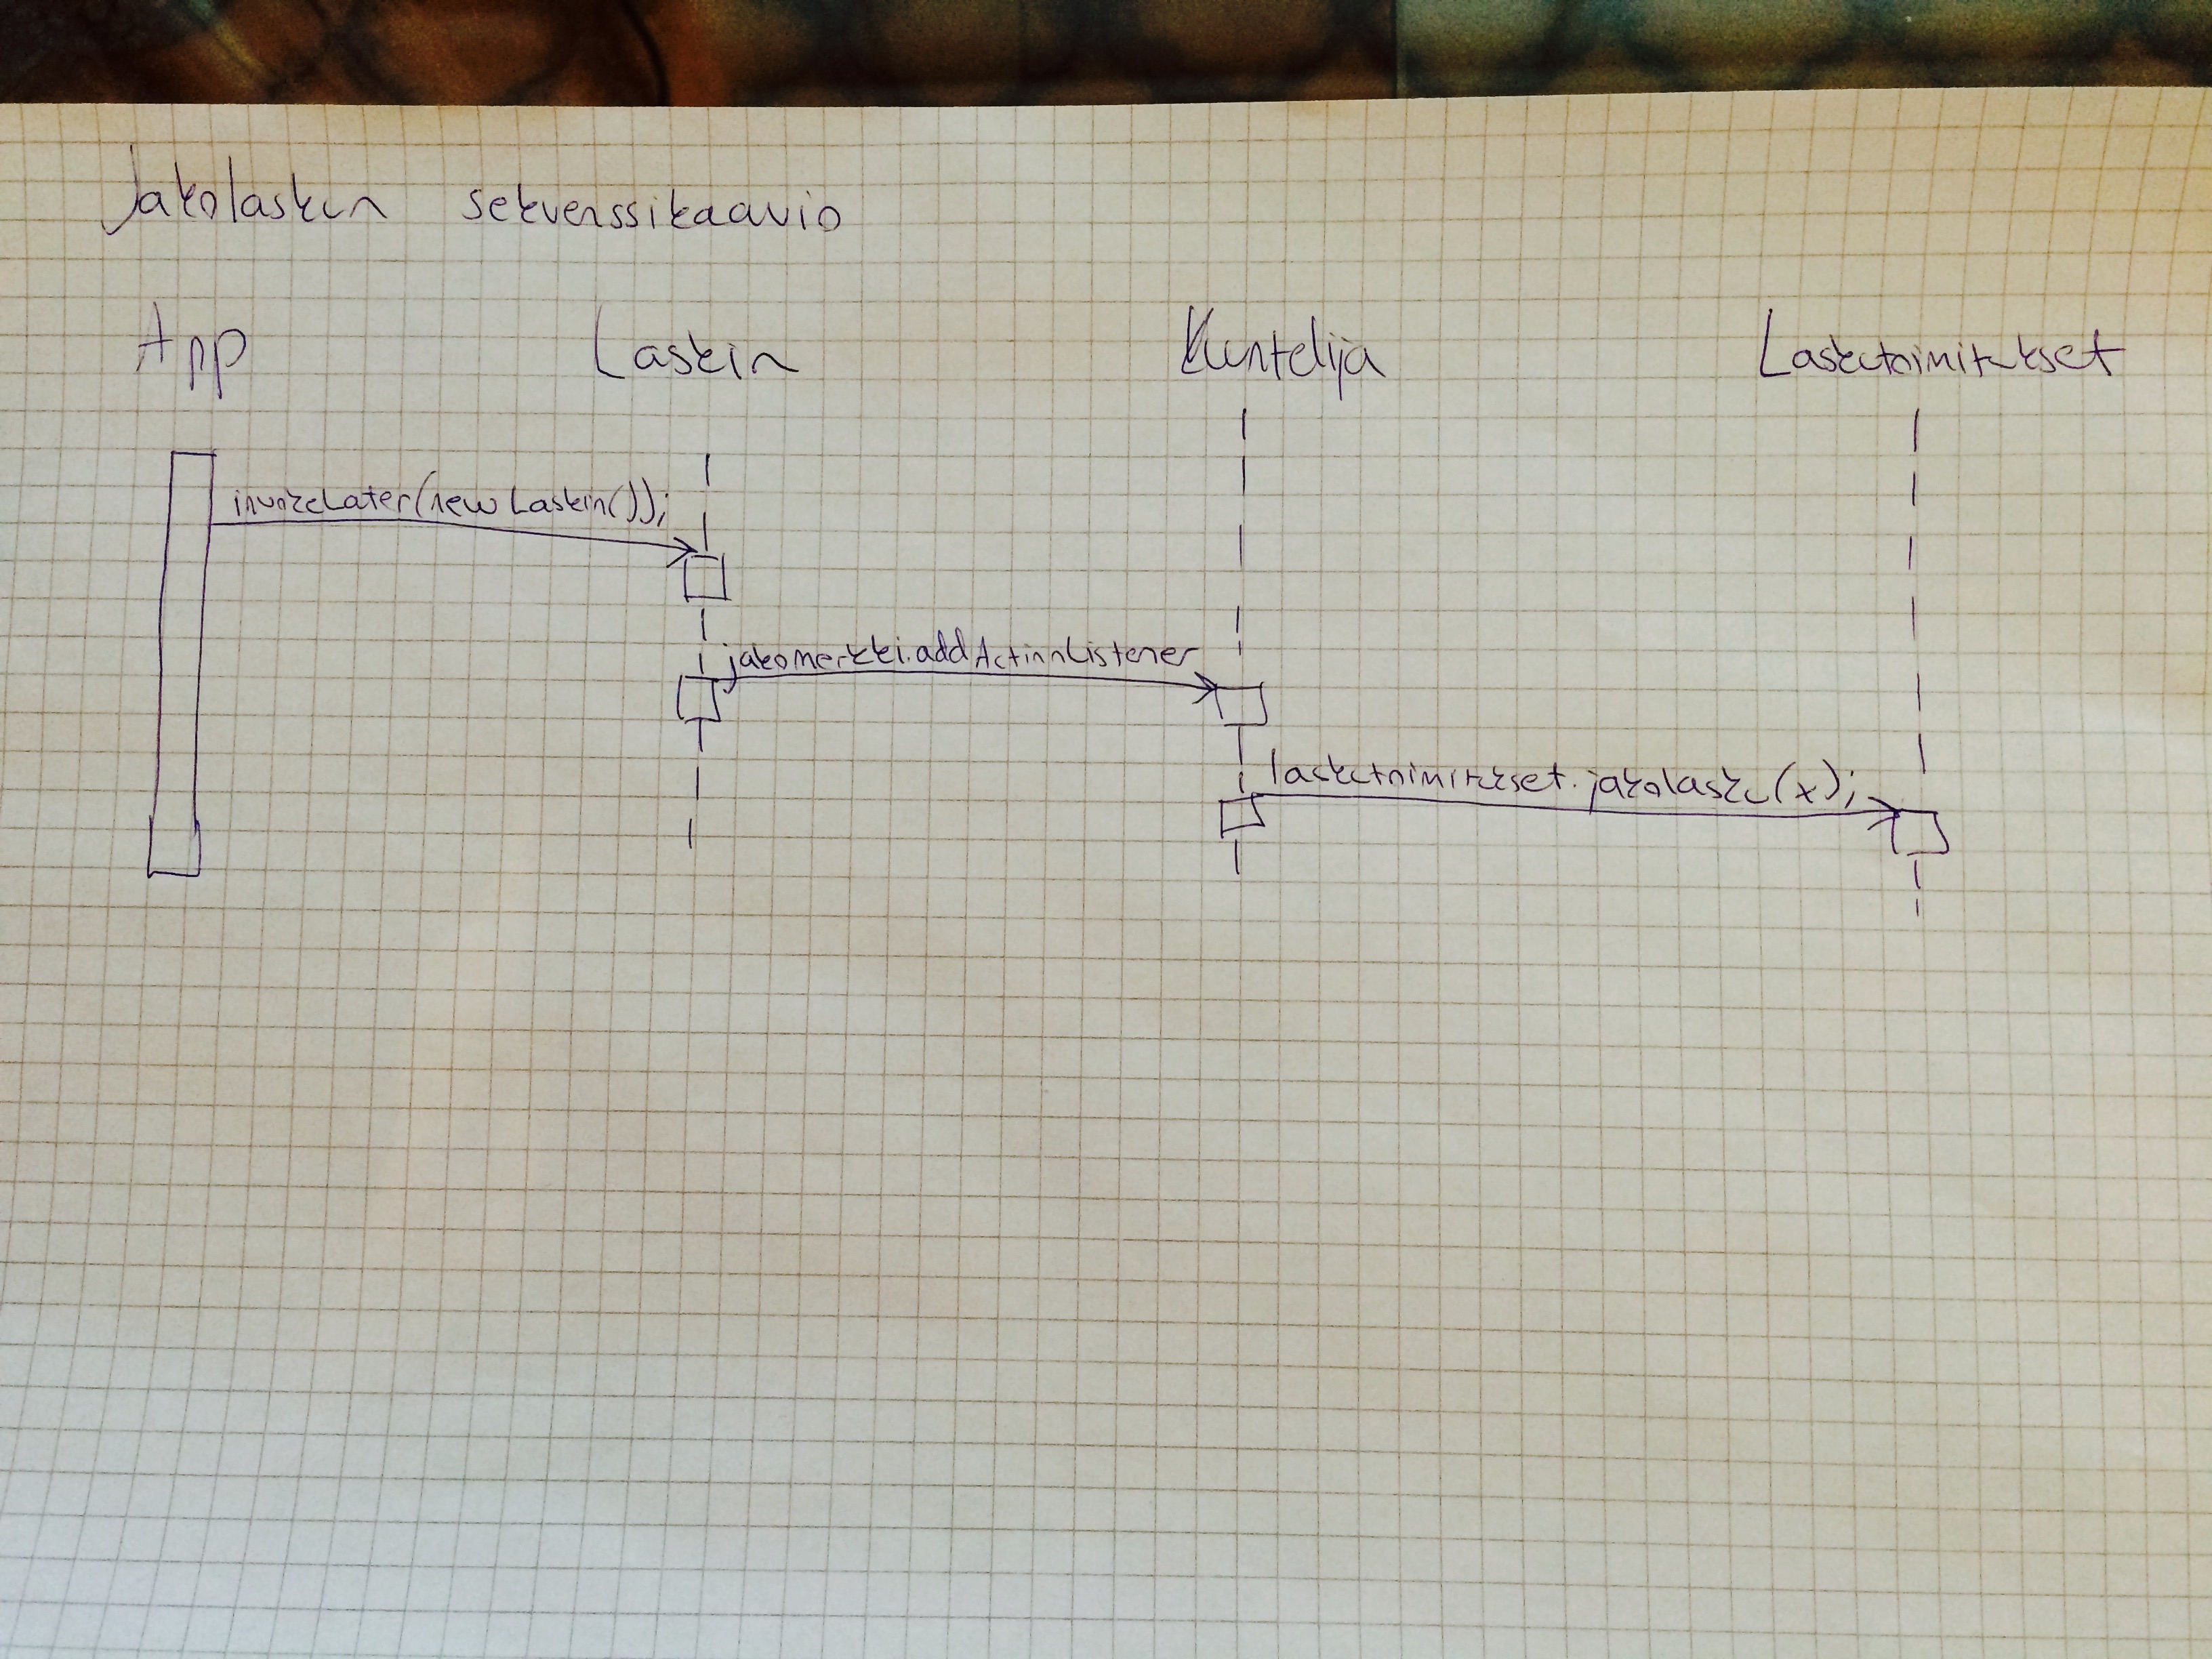 Jakolaskun sekvenssikaavio
App Laskin Kuntelija Laskutoimitukset
invokeLater(new Laskin());
jakomerkki.addActionListener
laskutoimitukset.jakolasku(x);